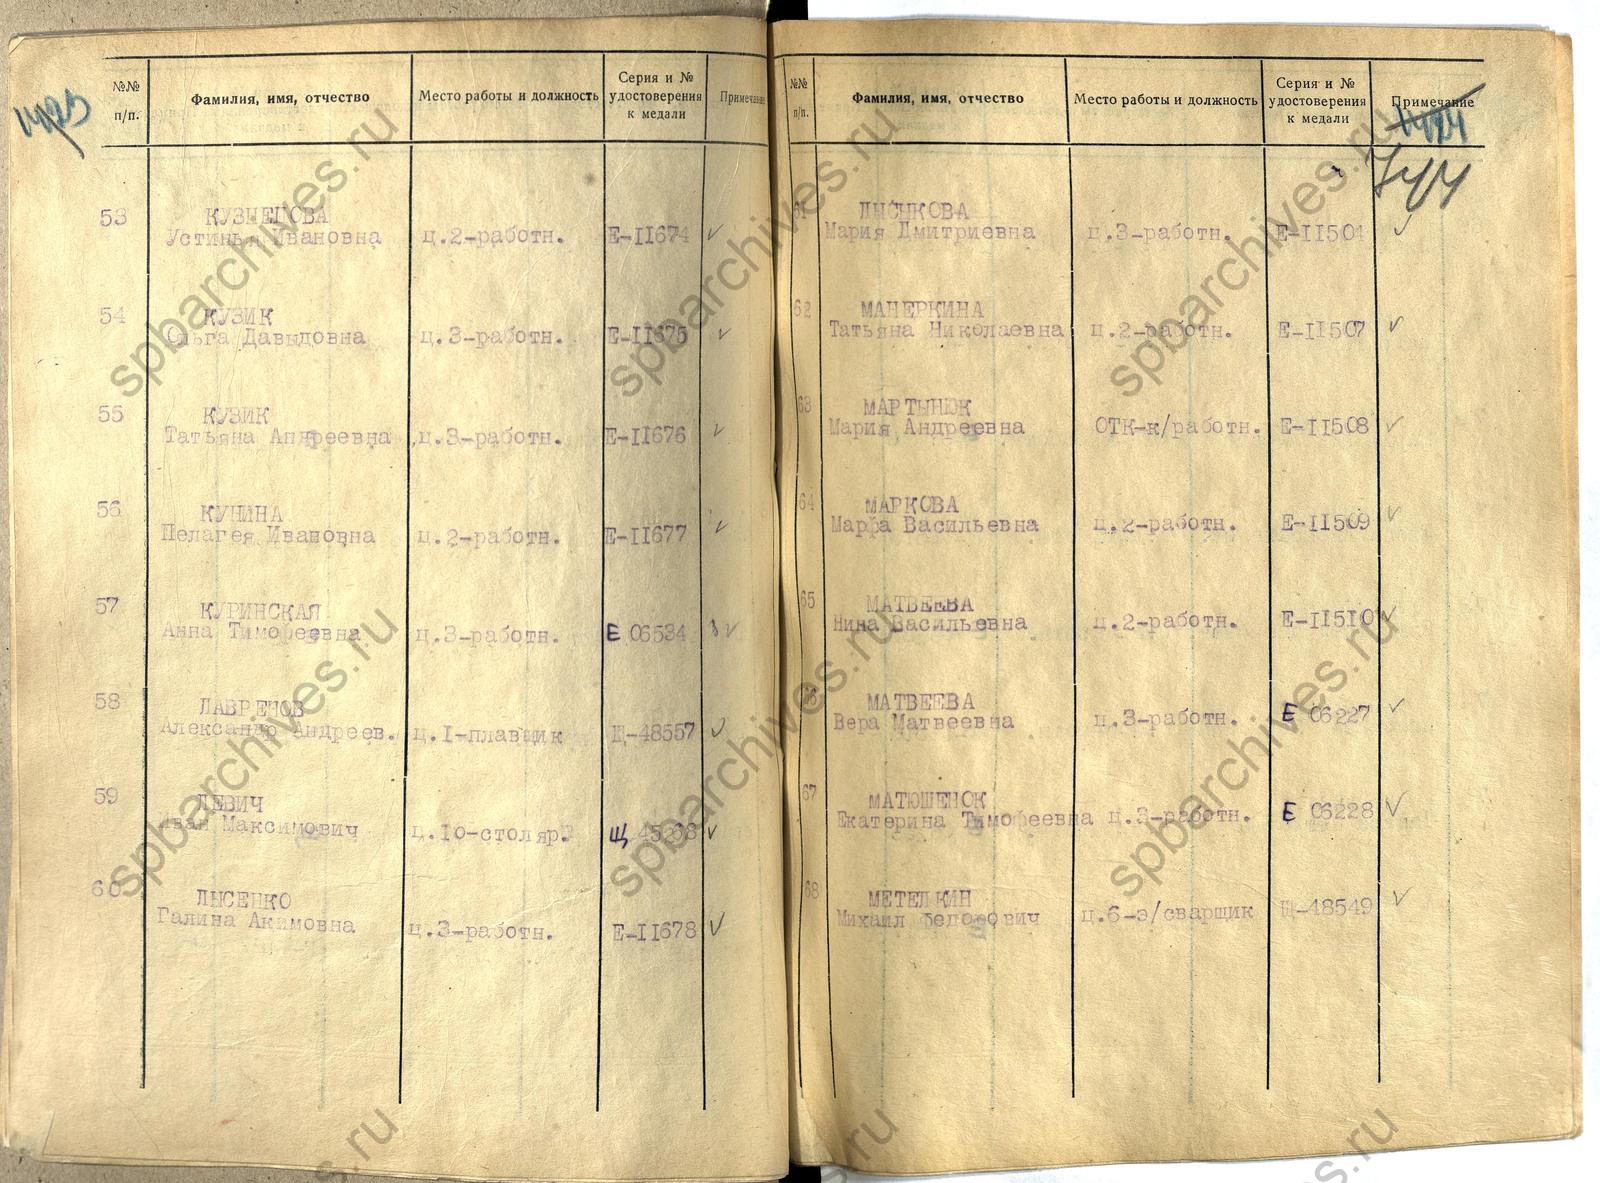 №№ п/п.
Фамилия, имя, отчество
Место работы и должность
Серия и № удостоверения к медали
Примечание
53 КУЗНЕЦОВА
Устинья Ивановна ц.2-работн. Е-II674
54 КУЗИК
Ольга Давыдовна ц.3-работн. Е-II675
55 КУЗИК
Татьяна Андреевна ц.3-работн. Е-II676
56 КУНИНА
Пелагея Ивановна ц.2-работн. Е-II677
57 КУРИНСКАЯ
Анна Тимофеевна ц.3-работн. Е 06534
58 ЛАВРЕНОВ
Александр Андреев. ц.I-плавщик Щ-48557
59 ЛЕВИЧ
Иван Максимович ц.Iо-столяр. Щ 45268
60 ЛЫСЕНКО
Галина Акимовна ц.3-работн. Е-II678
№№ п/п.
Фамилия, имя, отчество
Место работы и должность
Серия и № удостоверения к медали
Примечание
744
61 ЛЫСИКОВА
Мария Дмитриевна ц.3-работн. Е-II504
62 МАНЕРКИНА
Татьяна Николаевна ц.2-работн. Е-II507
63 МАРТЫНЮК
Мария Андреевна ОТК-к/работн. Е-II508
64 МАРКОВА
Марфа Васильевна ц.2-работн. Е-II509
65 МАТВЕЕВА
Нина Васильевна ц.2-работн. Е-II510
66 МАТВЕЕВА
Вера Матвеевна ц.3-работн. Е 06227
67 МАТЮШЕНОК
Екатерина Тимофеевна ц.3-работн. Е 06228
68 МЕТЕЛКИН
Михаил Федорович ц.6-э/сварщик Щ-48549
spbarchives.ru